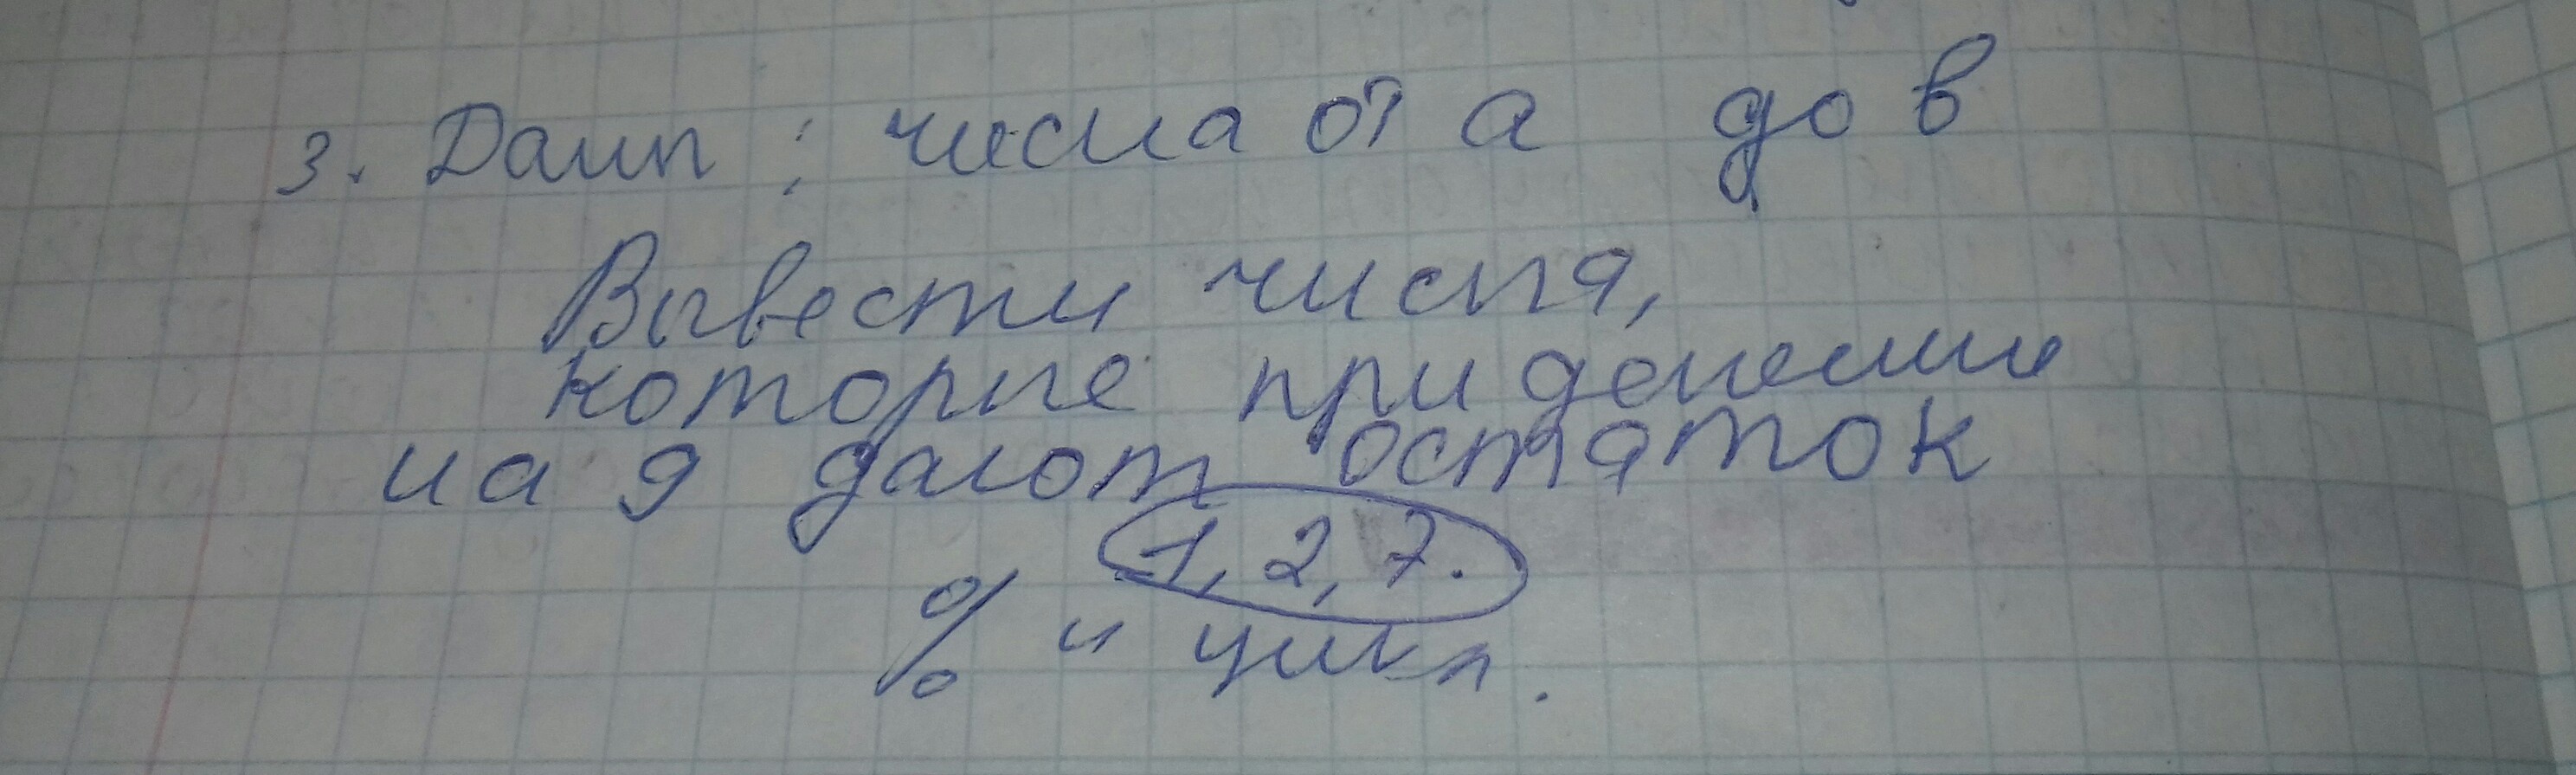 3. Дано: числа от а до в
Вывести числа,
которые при делении
на 9 дают остаток
1, 2, 7.
% и цикл.